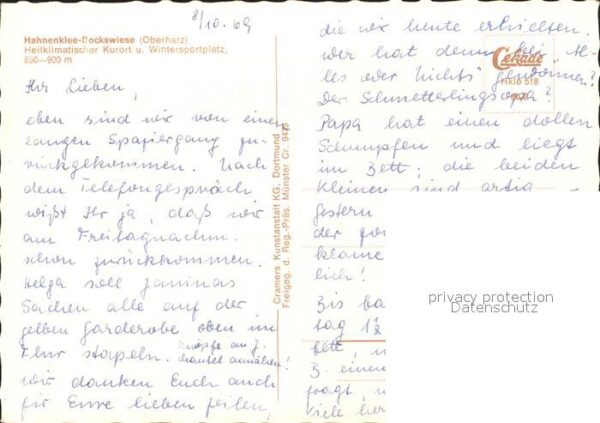 8/10.69
Hahnenklee-Bockswiese (Oberharz)
Heilklimatischer Kurort u. Wintersportplatz,
600—900 m
Ihr Lieben,
eben sind wir von einem
langen Spaziergang zu-
rückgekommen. Nach
dem Telefongespräch
wißt Ihr ja, daß wir
am Freitagnachm.
schon zurückkommen.
Helga soll Janinas
Sachen alle auf der
gelben Garderobe oben im
Flur stapeln. Knöpfe an J.
Mantel annähen!
Wir danken Euch auch
für Eure lieben Zeilen,
die wir heute erhielten.
Wer hat denn bei „Al-
les oder Nichts“ gewonnen?
Der Schmetterlingsopa?
Papa hat einen dollen
Schnupfen und liegt
im Bett; die beiden
Kleinen sind artig
gestern
der
klame
lich!
Bis
tag
bett,
3. einen
fragt,
viele
Cekade
HKle 518
Cramers Kunstanstalt KG. Dortmund
Freigeg. d. Reg.-Präs. Münster Cr. 9479
privacy protection
Datenschutz